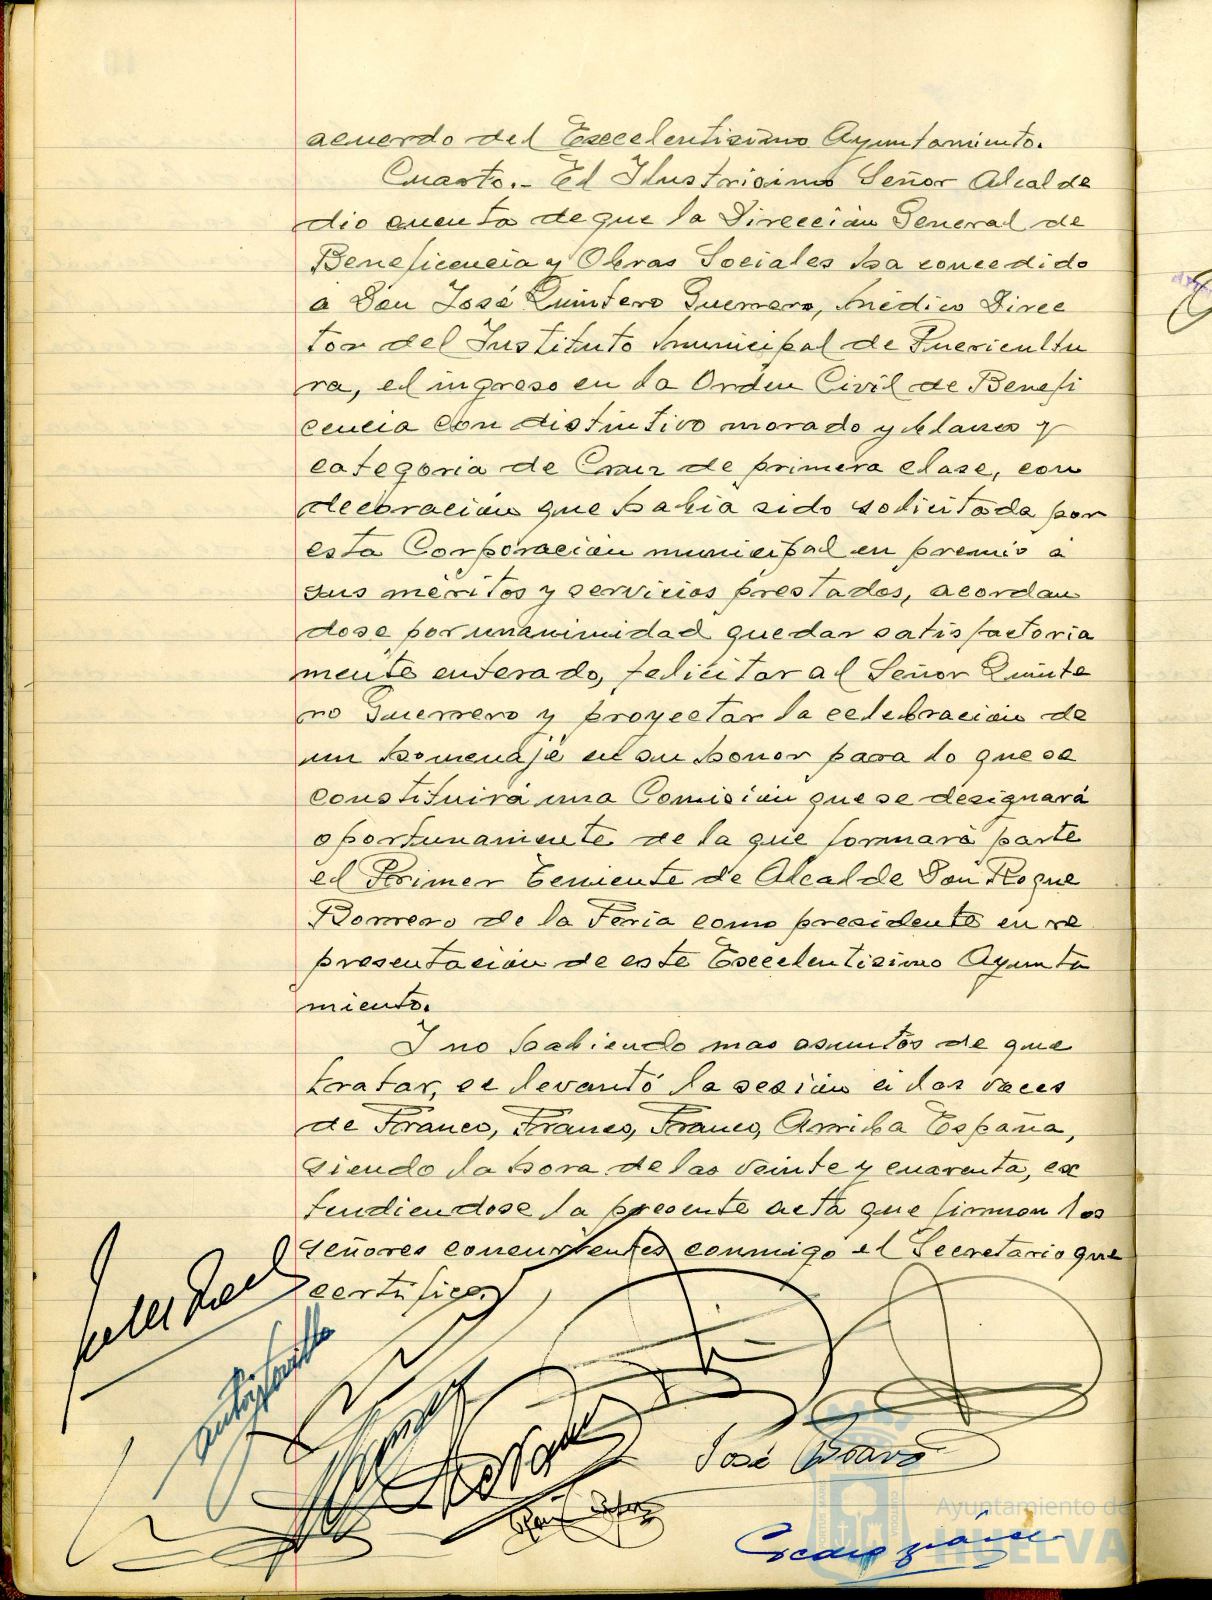 acuerdo del Excelentisimo Ayuntamiento.
Cuarto.- El Ilustrisimo Señor Alcalde
dio cuenta de que la Dirección General de
Beneficencia y Obras Sociales ha concedido
a Don José Quintero Guerrero, Médico Direc
tor del Instituto municipal de Puericultu
ra, el ingreso en la Orden Civil de Benefi
cencia con distintivo morado y blanco y
categoria de Cruz de primera clase, con
decoración que habia sido solicitada por
esta Corporación municipal en premio a
sus méritos y servicios prestados, acordan
dose por unanimidad quedar satisfactoria
mente enterado, felicitar al Señor Quinte
ro Guerrero y proyectar la celebración de
un homenaje en su honor para lo que se
constituirá una Comisión que se designará
oportunamente de la que formará parte
el Primer Teniente de Alcalde Don Roque
Borrero de la Feria como presidente en re
presentación de este Excelentisimo Ayunta
miento.
Y no habiendo mas asuntos de que
tratar, se levantó la sesión a las voces
de Franco, Franco, Franco, Arriba España,
siendo la hora de las veinte y cuarenta, ex
tendiendose la presente acta que firman los
señores concurrentes conmigo el Secretario que
certifico.
José
Ayuntamiento de
HUELVA